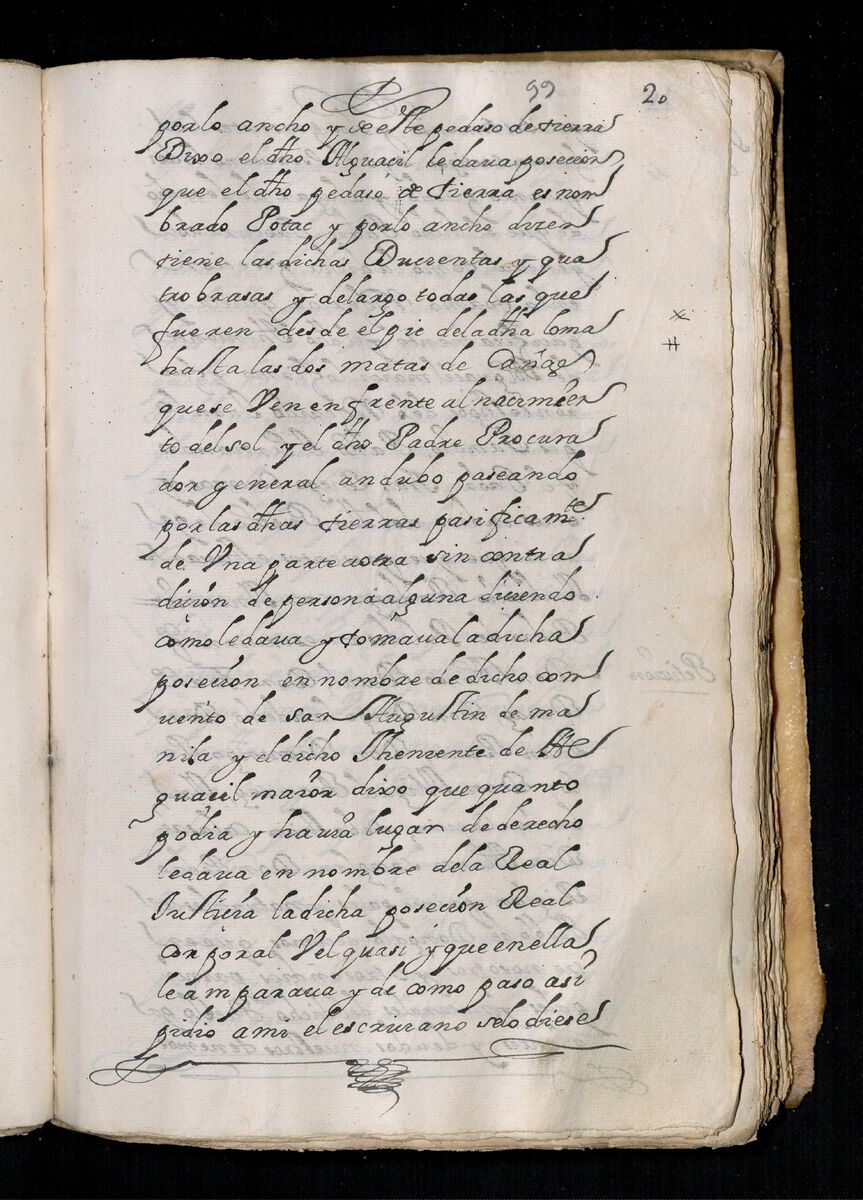 99 20
por lo ancho y de este pedaso de tierra
Dixo el dho Alguacil le daua poseción
que el dho pedaso de tierra es nom
brado Potac y por lo ancho dizen
tiene las dichas Ducientas y qua
tro brasas y de largo todas las que
fueren desde el pie de la dha loma
hasta las dos matas de Cañas
que se Ven en frente al nacimien
to del sol y el dho Padre Procura
dor general andubo paseando
por las dhas tierras pasificamte
de Vna parte a otra sin contra
dición de persona alguna diciendo
como le daua y tomaua la dicha
poseción en nombre de dicho com
uento de san Augustin de ma
nila y el dicho Theniente de Al
guacil maior dixo que quanto
podia y hauia lugar de derecho
le daua en nombre de la Real
Justicia la dicha poseción Real
corporal Vel quasi y que en ella
le amparaua y de como paso asi
pidio a mi el escriuano se lo diese